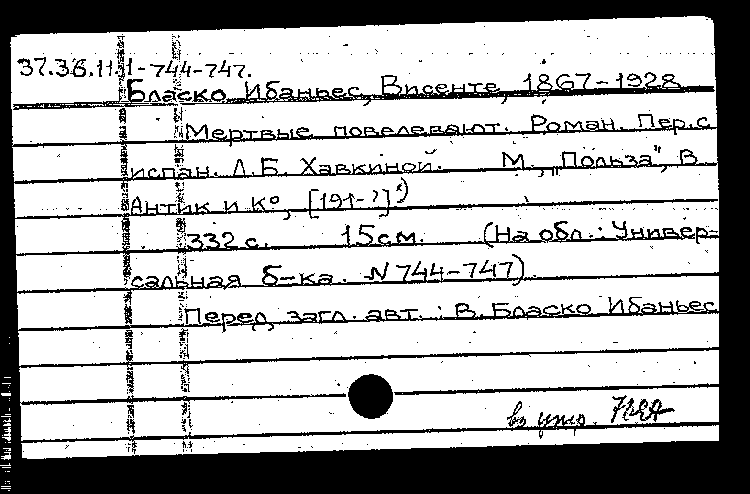 37.36.11.1-744-747.
Бласко Ибаньес, Висенте, 1867-1928
Мертвые повелевают. Роман. Пер. с
испан. Л.Б. Хавкиной. М., „Польза", В.
Антик и К°, [191-?]*)
332 с. 15 см. (На обл.: Универ-
сальная б-ка. N 744-747).
Перед загл. авт.: В. Бласко Ибаньес